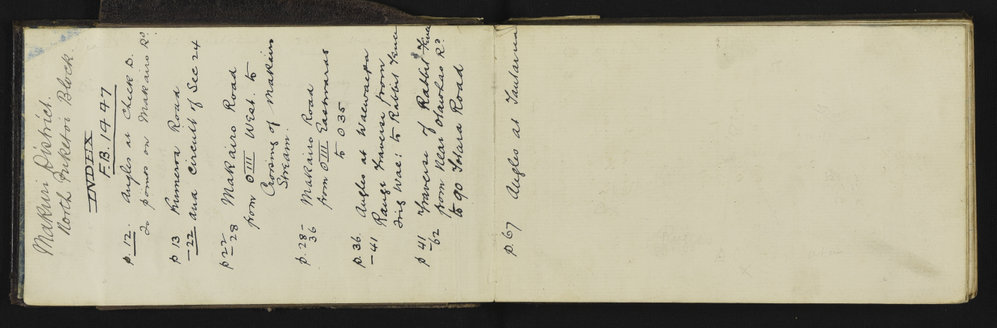 Makuri District
North Puketoi Block.
INDEX
F.B. 1497
p. 12. Angles at Check D.
to pomos on Makairo Rd.
p 13 Rumera Road
-22 and circuit of Sec 24
p 22 Makairo Road
-28 from O III West. to
Crossing of Makairo
Stream.
p. 28- Makairo Road
36 from O III Eastwards
to O 35
p. 36 Angles at Waewaepa
-41 Range traverse from
Trig Wae: to Rabbit Fence
p 41 Traverse of Rabbit Fence
-62 from Near Rd.
to 90 Totara Road
p. 67 Angles at